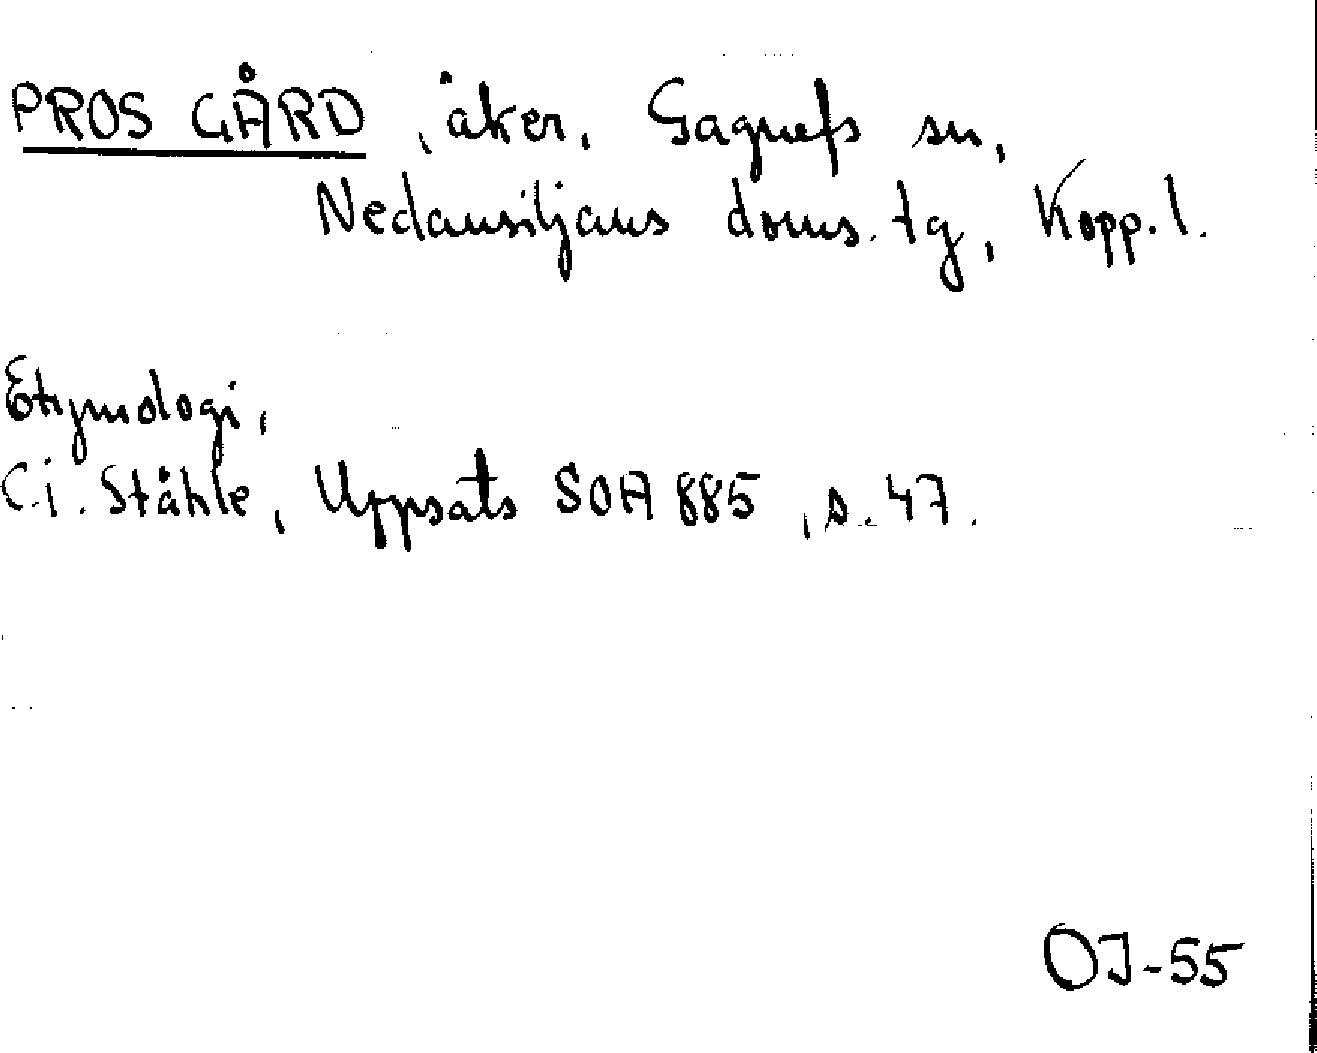 PROS GÅRD, åker, Gagnefs sn,
Nedansiljans doms. tg, Kopp. l.
Etymologi,
C.i. Ståhle, Uppsats SOA 885, s. 47.
OJ-55